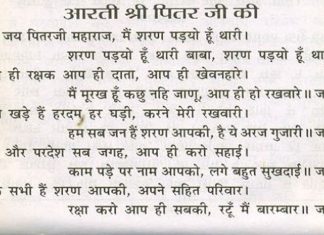 आरती श्री पितर जी की
जय पितरजी महाराज, मैं शरण पड़यो हूँ थारी।
शरण पड़यो हूँ थारी बाबा, शरण पड़यो हूँ
ही रक्षक आप ही दाता, आप ही खेवनहारे।
मैं मूरख हूँ कछु नहि जाणू, आप ही हो रखवारे॥ ज
खड़े हैं हरदम हर घड़ी, करने मेरी रखवारी।
हम सब जन हैं शरण आपकी, है ये अरज गुजारी॥ ज
और परदेश सब जगह, आप ही करो सहाई।
काम पड़े पर नाम आपको, लगे बहुत सुखदाई॥ ज
सभी हैं शरण आपकी, अपने सहित परिवार।
रक्षा करो आप ही सबकी, रटूँ मैं बारम्बार॥ ज